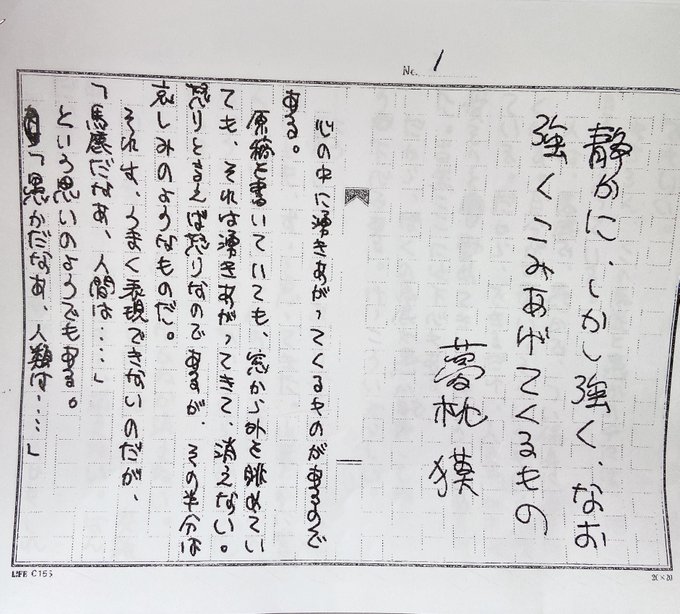 No. 1
静かに、しかし強く、なお
強くこみあげてくるもの
夢枕 獏
心の中に湧きあがってくるものがあるので
ある。
原稿を書いていても、窓から外を眺めてい
ても、それは湧きあがってきて、消えない。
怒りと言えば怒りなのであるが、その半分は
哀しみのようなものだ。
それは、うまく表現できないのだが、
「馬鹿だなあ、人間は‥‥」
という思いのようでもある。
「愚かだなあ、人類は‥‥」
LIFE C155
20×20